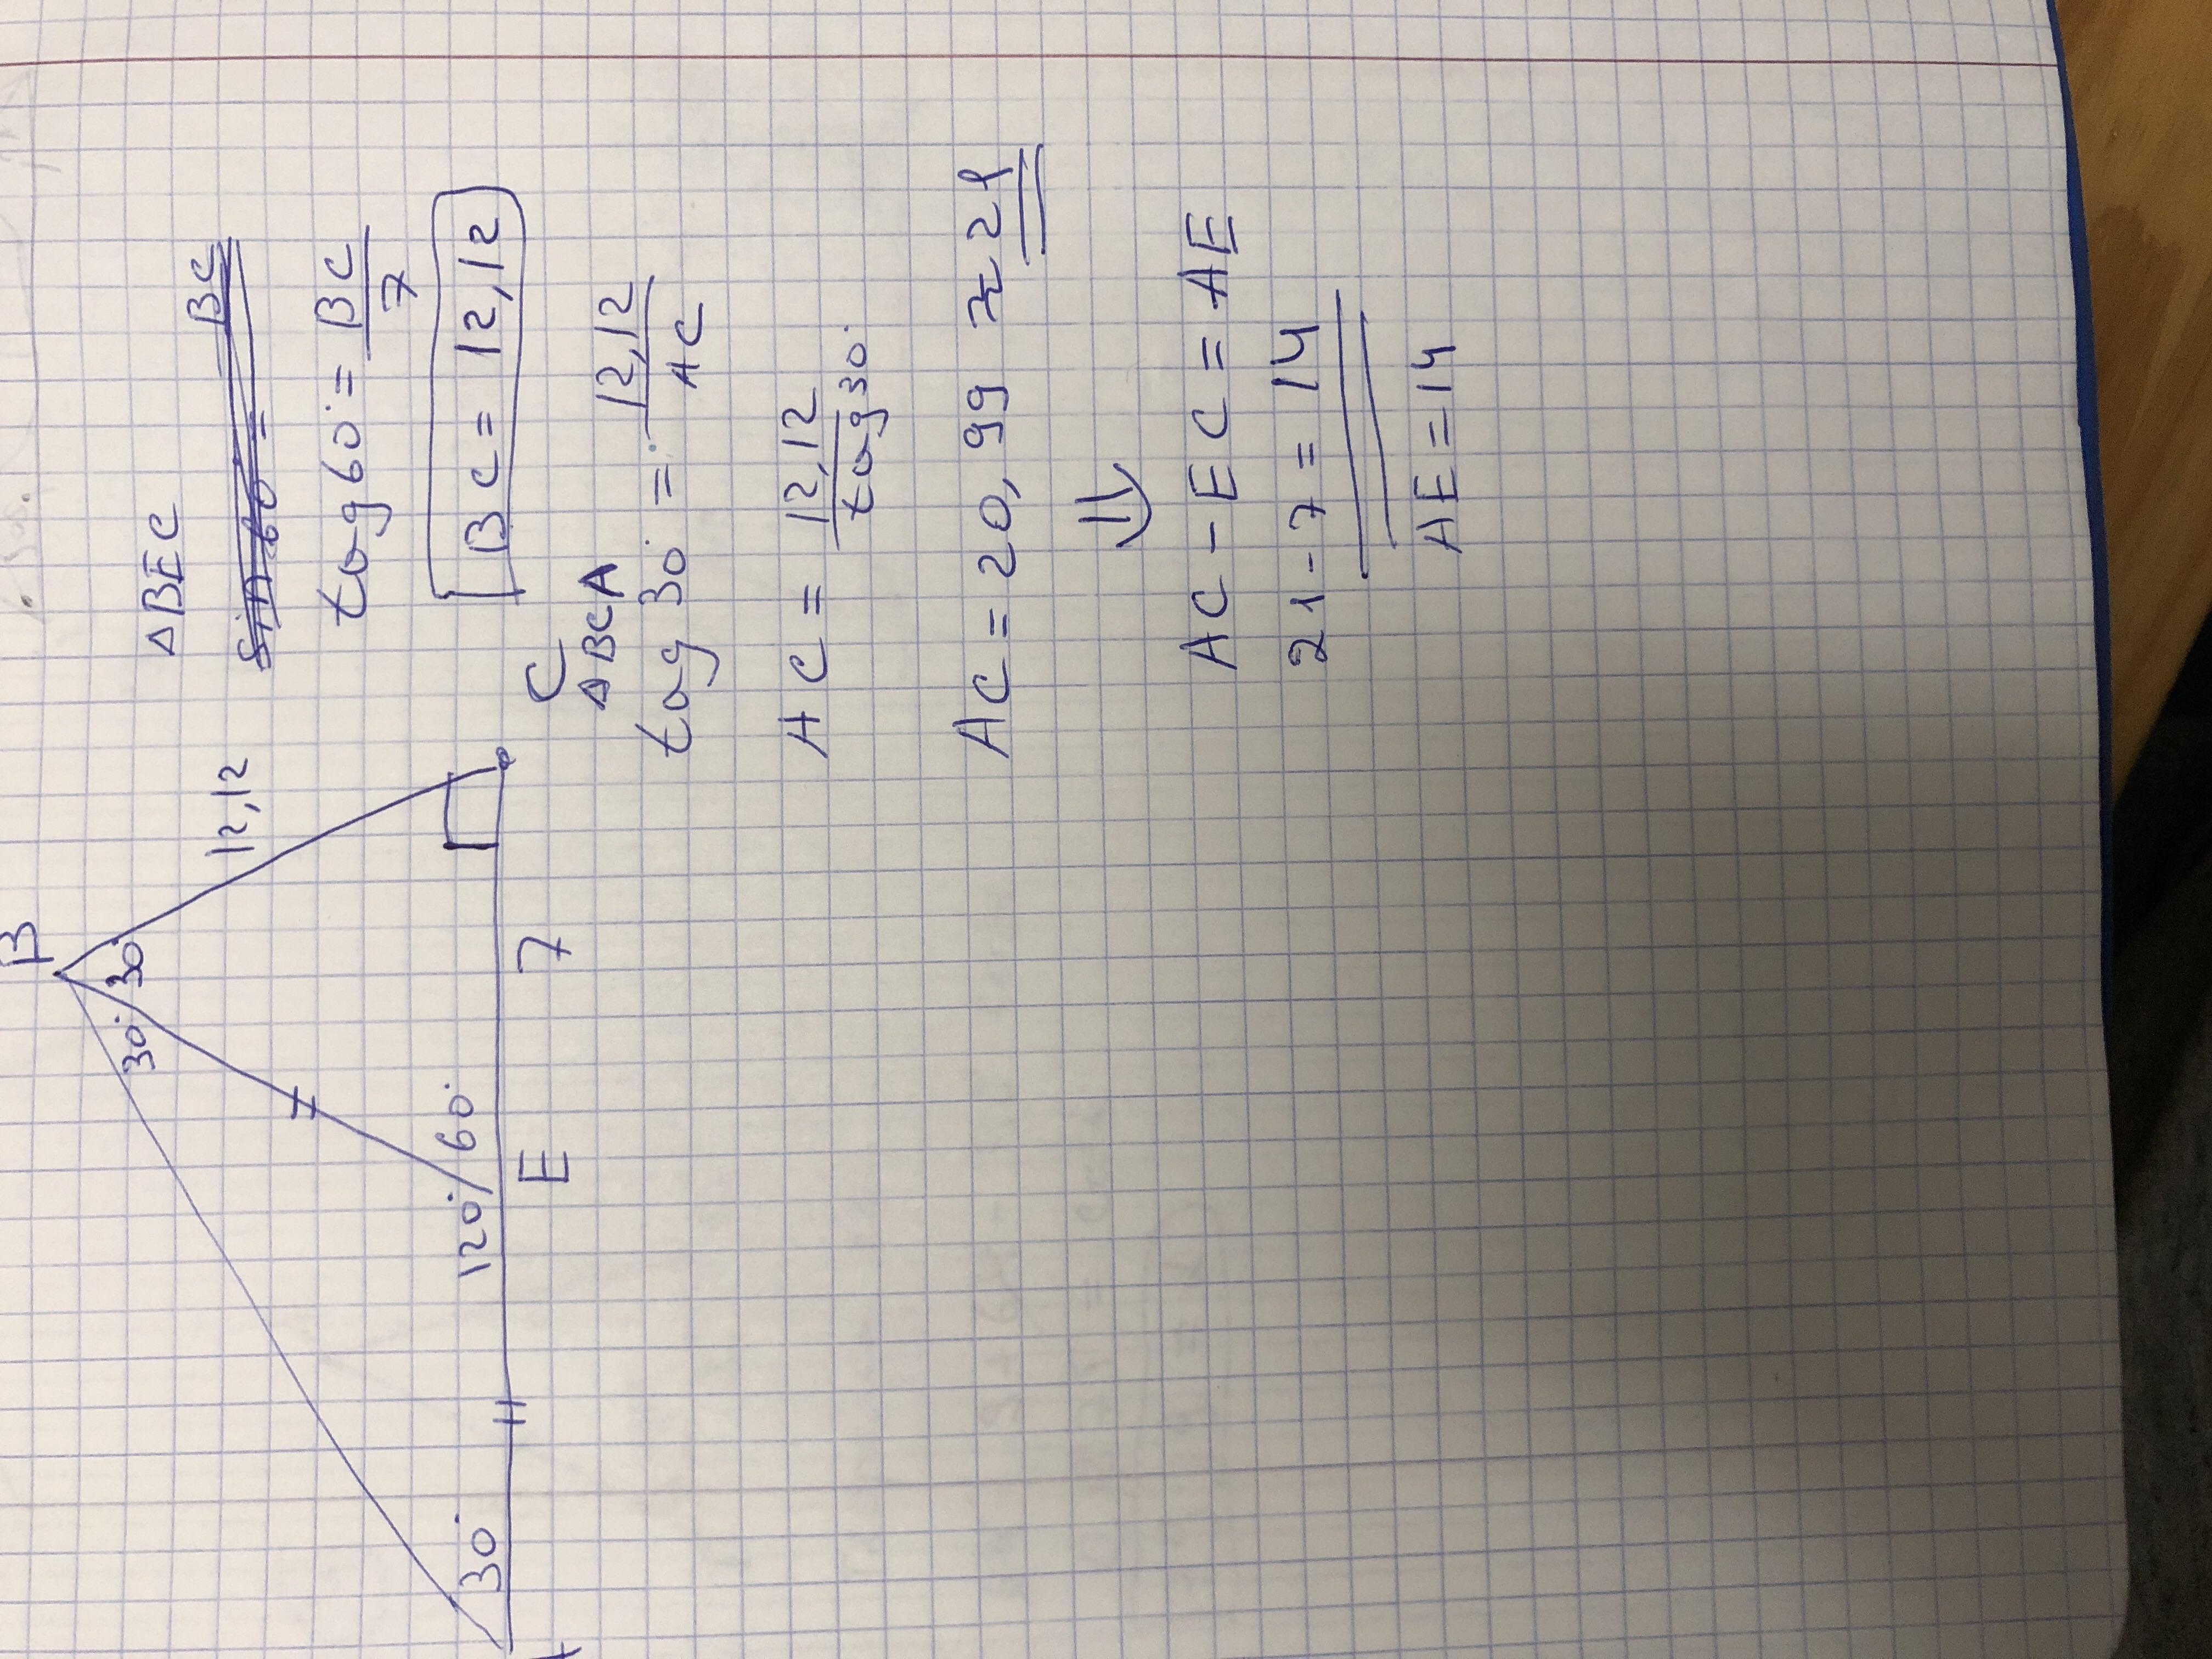 B
30° 30°
12,12
120° 60°
30°
E 7
C
ΔBEC
sin 60° = BC
tag 60° = BC/7
BC = 12,12
ΔBCA
tag 30° = 12,12/AC
AC = 12,12/tag 30°
AC = 20,99 ≈ 21
⇓
AC - EC = AE
21 - 7 = 14
AE = 14